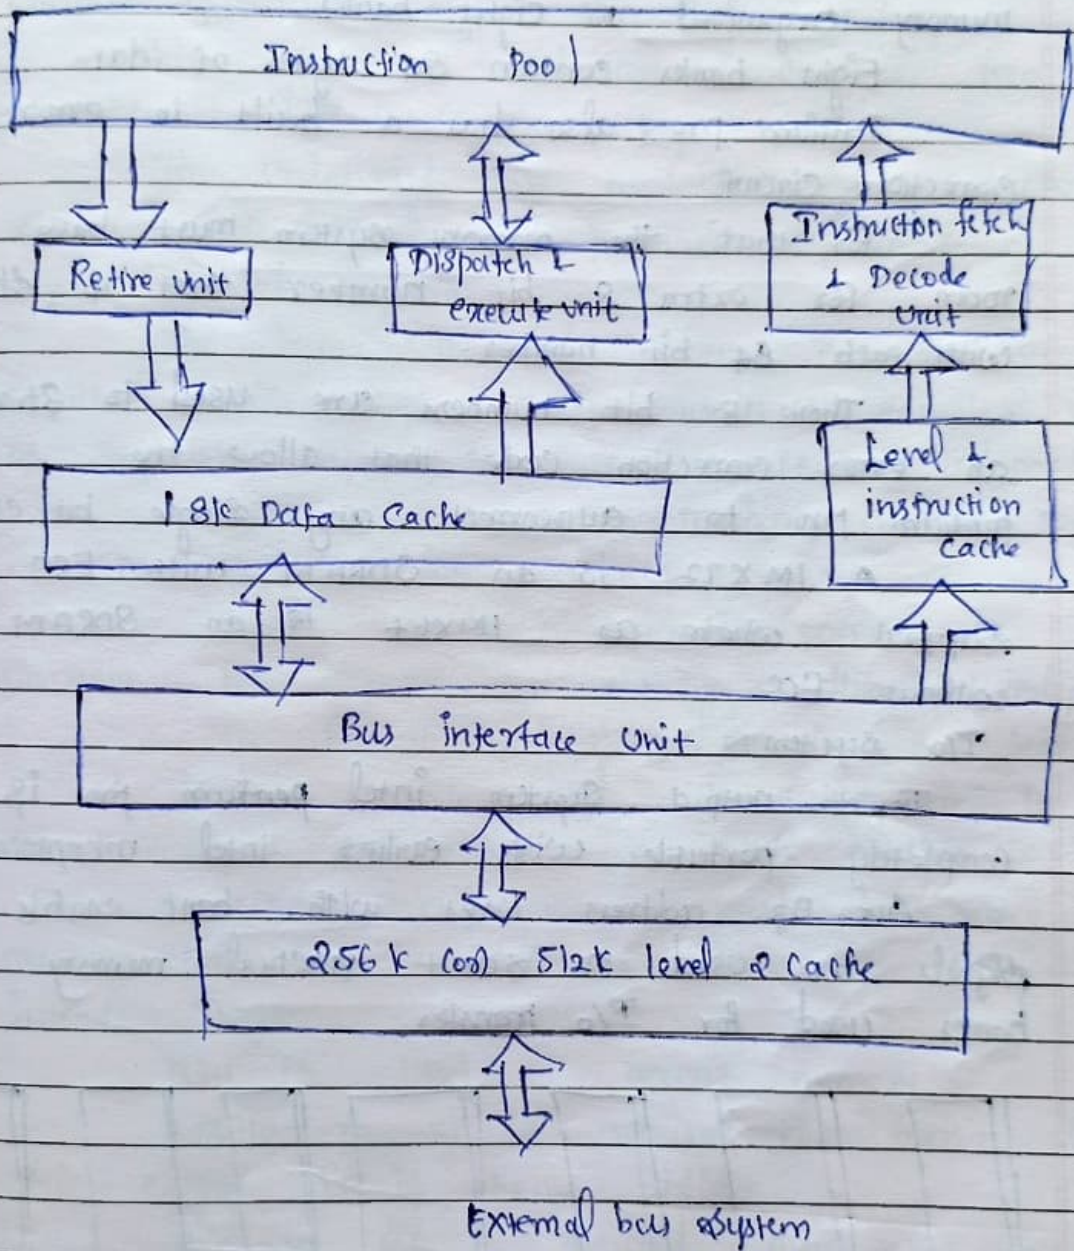 Instruction Pool
Retire unit
Dispatch &
execute unit
Instruction fetch
& Decode
unit
Level 1
instruction
Cache
1 8k Data Cache
Bus interface Unit
256 k (or) 512K level 2 Cache
External bus system